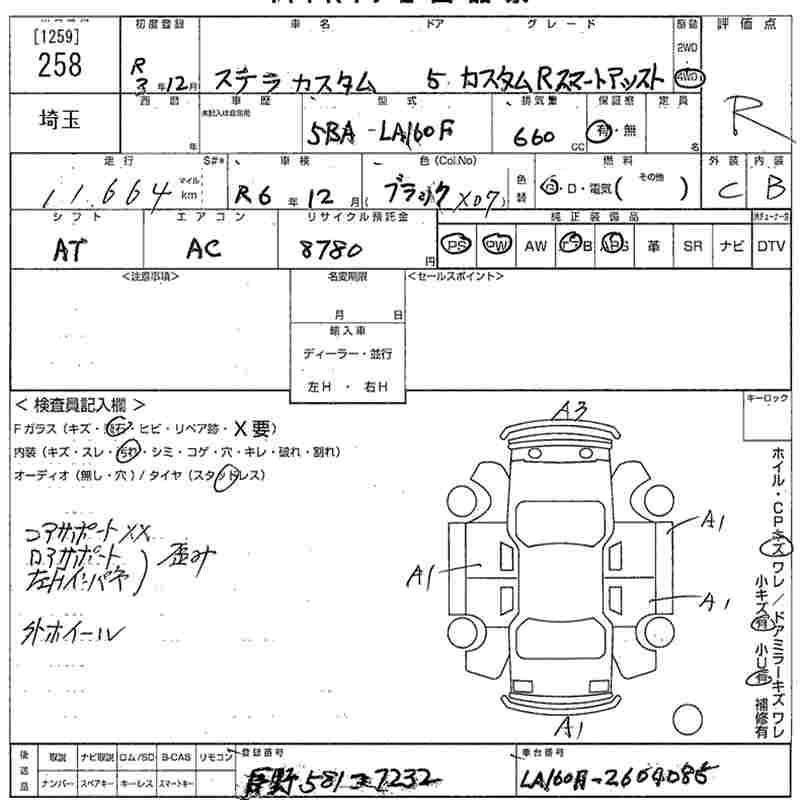 [1259]
258
埼玉
初度登録
R 3年12月
車名
ドア
グレード
ステラ カスタム 5 カスタムRスマートアシスト
2WD
4WD
評価点
R
西暦
年
車歴
型式
5BA-LA160F
排気量
660 CC
保証書
有・無
定員
名
走行
S#*
11,664
マイル
km
車検
R6年12月
色(Col.No)
ブラック(X07)
色替
燃料
G・D・電気( その他 )
外装
C
内装
B
シフト
AT
エアコン
AC
リサイクル預託金
8780円
純正装備品
PS PW AW AB ABS 革 SR ナビ DTV
<注意事項>
名変期限
月 日
輸入車
ディーラー・並行
左H ・ 右H
<セールスポイント>
キーロック
<検査員記入欄>
Fガラス(キズ・飛石・ヒビ・リペア跡・X要)
内装(キズ・スレ・汚れ・シミ・コゲ・穴・キレ・破れ・割れ)
オーディオ(無し・穴)/タイヤ(スタッドレス)
コアサポートXX
ロアサポート
左Hインパネ
歪み
外ホイール
A3
A1
A1
A1
A1
ホイル・CPキズ ワレ/ドアミラーキズ ワレ
小キズ有 小U有 補修有
後送品
取説 ナビ取説 ロム/SD B-CAS リモコン
ナンバー スペアキー キーレス スマートキー
登録番号
長野 581 7232
車台番号